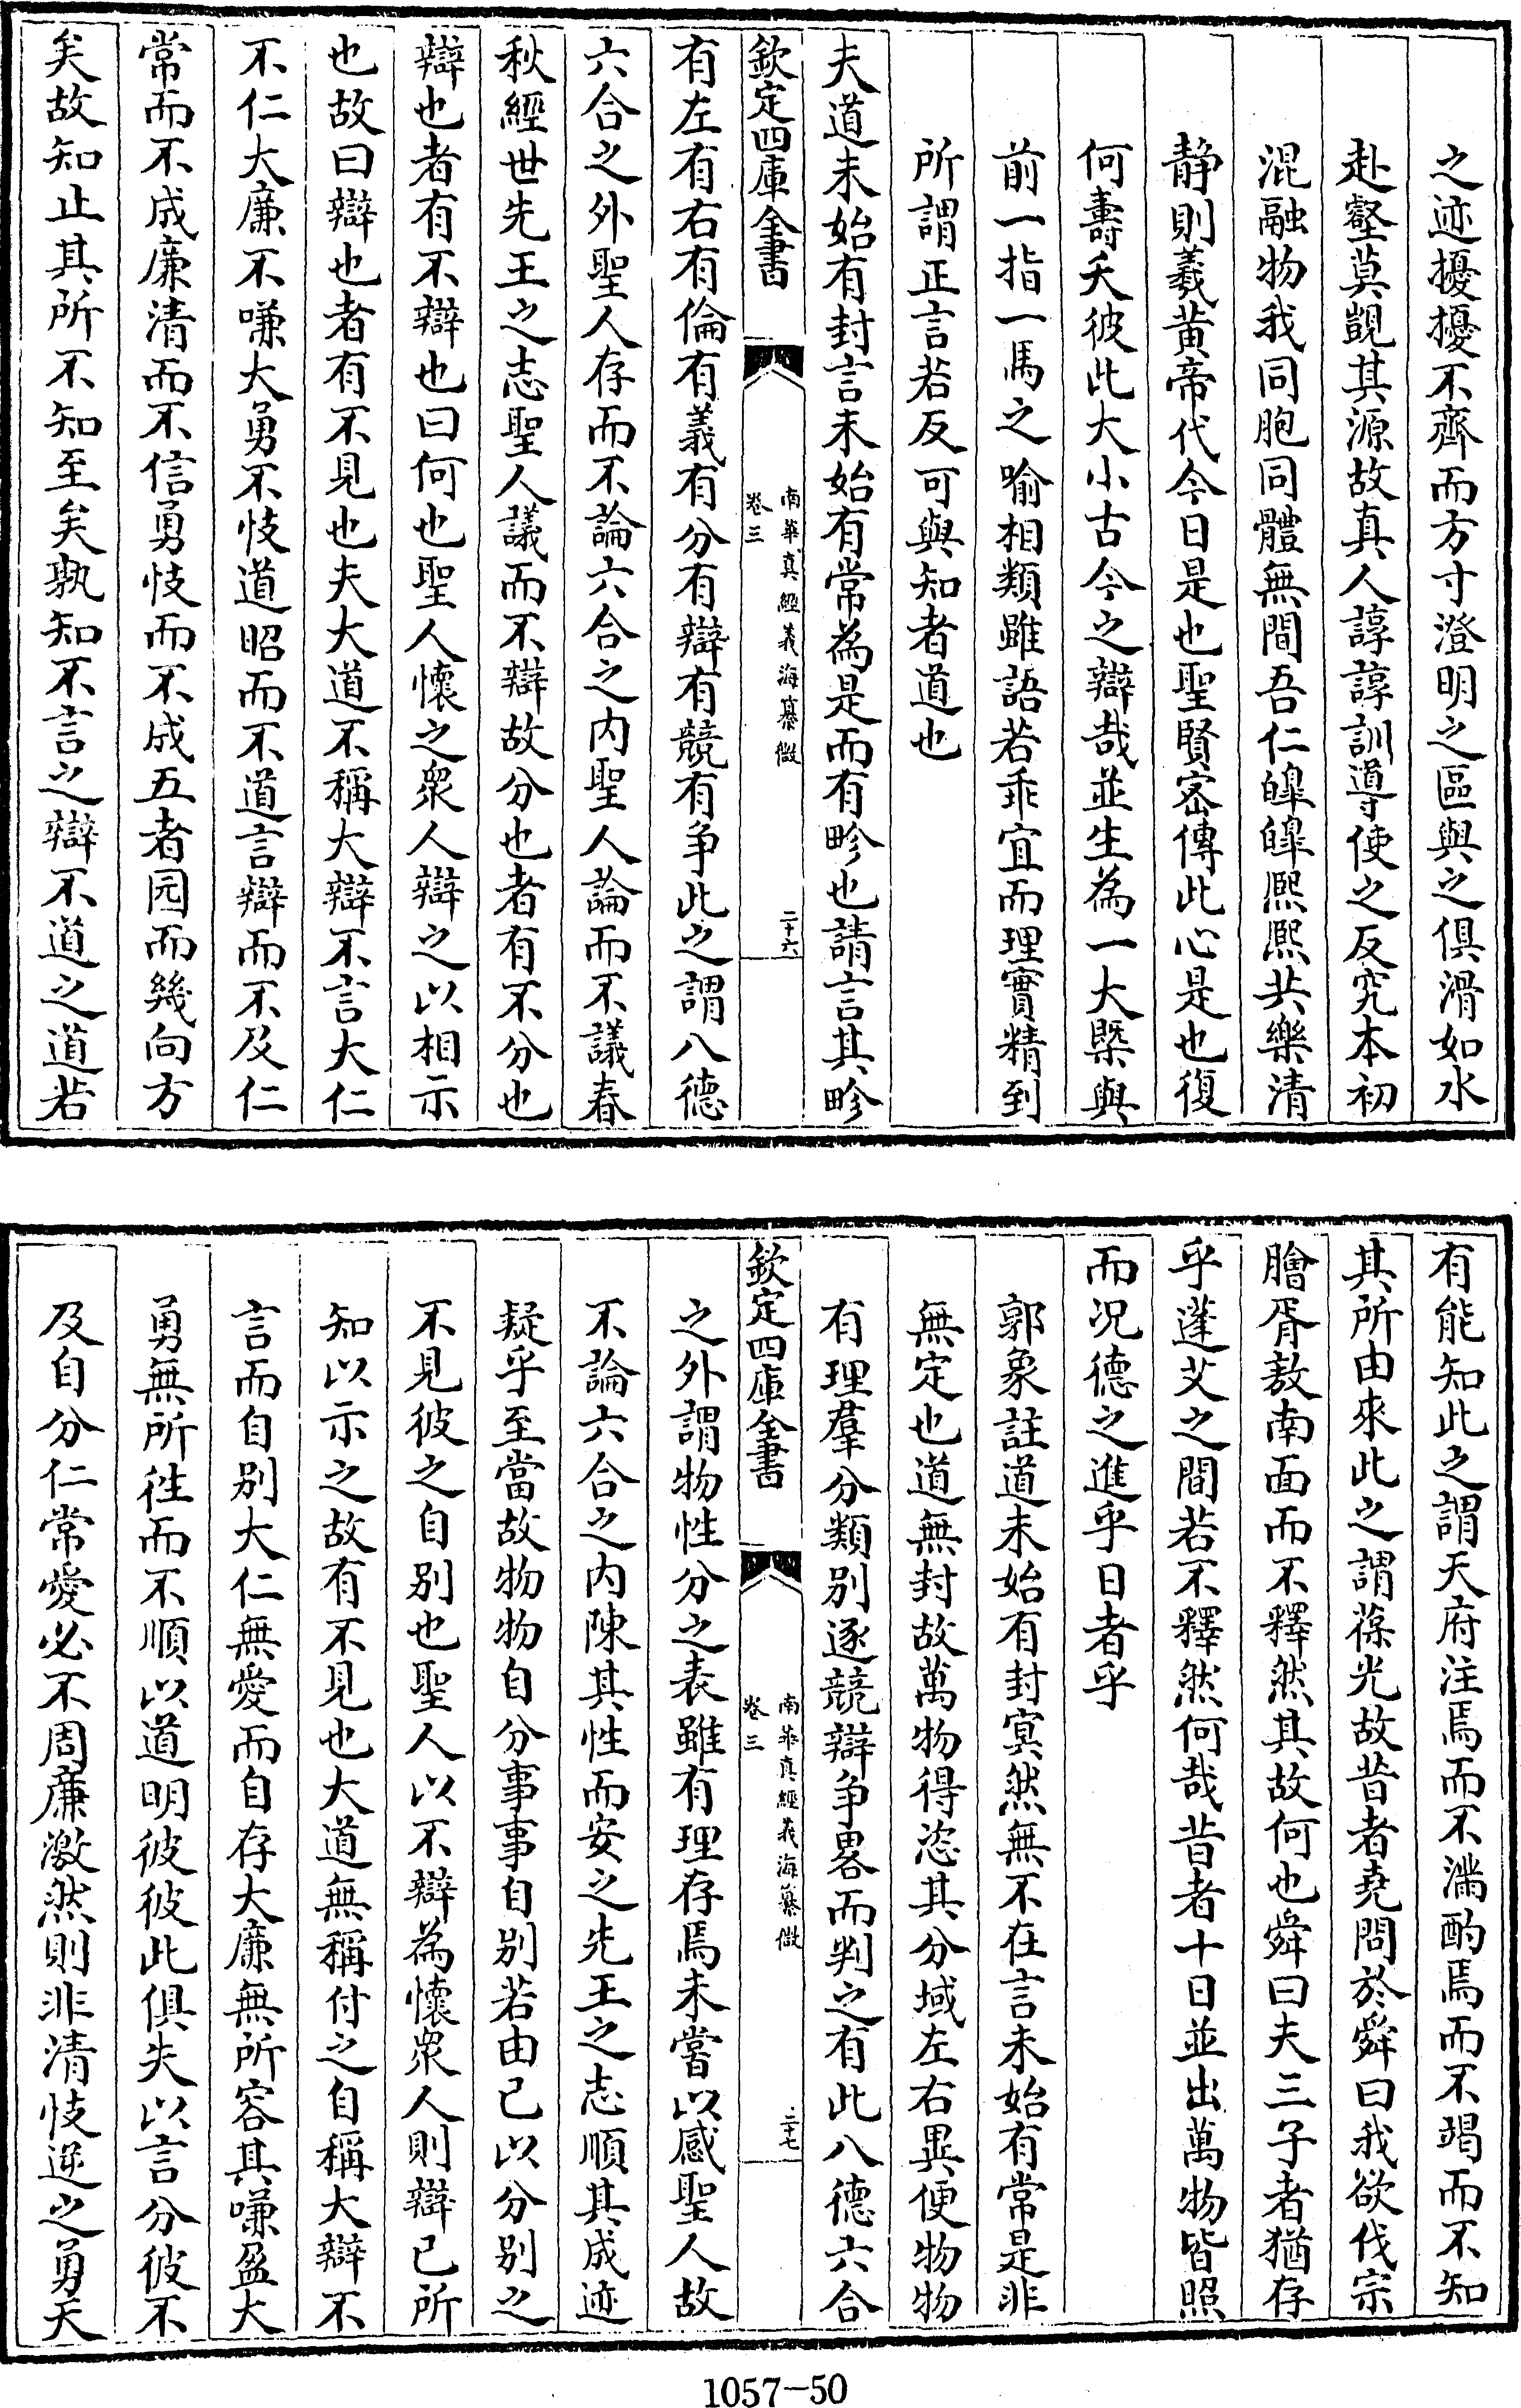 之迹擾擾不齊而方寸澄明之區與之俱滑如水
赴壑莫覬其源故真人諄諄訓導使之反究本初
混融物我同胞同體無間吾仁皥皥熈熈共樂清
静則羲黄帝代今日是也聖賢宻傳此心是也復
何夀夭彼此大小古今之辯哉並生為一大槩與
前一指一馬之喻相類雖語若乖宜而理實精到
所謂正言若反可與知者道也
夫道未始有封言未始有常為是而有畛也請言其畛
欽定四庫全書
南華真經義海纂微
卷三
二十六
有左有右有倫有義有分有辯有競有争此之謂八德
六合之外聖人存而不論六合之内聖人論而不議春
秋經世先王之志聖人議而不辯故分也者有不分也
辯也者有不辯也曰何也聖人懷之衆人辯之以相示
也故曰辯也者有不見也夫大道不稱大辯不言大仁
不仁大亷不嗛大勇不忮道昭而不道言辯而不及仁
常而不成亷清而不信勇忮而不成五者园而幾向方
矣故知止其所不知至矣孰知不言之辯不道之道若
有能知此之謂天府注焉而不滿酌焉而不竭而不知
其所由來此之謂葆光故昔者堯問於舜曰我欲伐宗
膾胥敖南面而不釋然其故何也舜曰夫三子者猶存
乎蓬艾之間若不釋然何哉昔者十日並出萬物皆照
而况德之進乎日者乎
郭象註道未始有封㝠然無不在言未始有常是非
無定也道無封故萬物得恣其分域左右異便物物
有理羣分類别逐競辯争畧而判之有此八德六合
欽定四庫全書
南華真經義海纂微
卷三
二十七
之外謂物性分之表雖有理存焉未嘗以感聖人故
不論六合之内陳其性而安之先王之志順其成迹
疑乎至當故物物自分事事自别若由已以分别之
不見彼之自别也聖人以不辯為懷衆人則辯已所
知以示之故有不見也大道無稱付之自稱大辯不
言而自别大仁無愛而自存大亷無所容其嗛盈大
勇無所徃而不順以道明彼彼此俱失以言分彼不
及自分仁常愛必不周亷激然則非清忮逆之勇天
1057-50